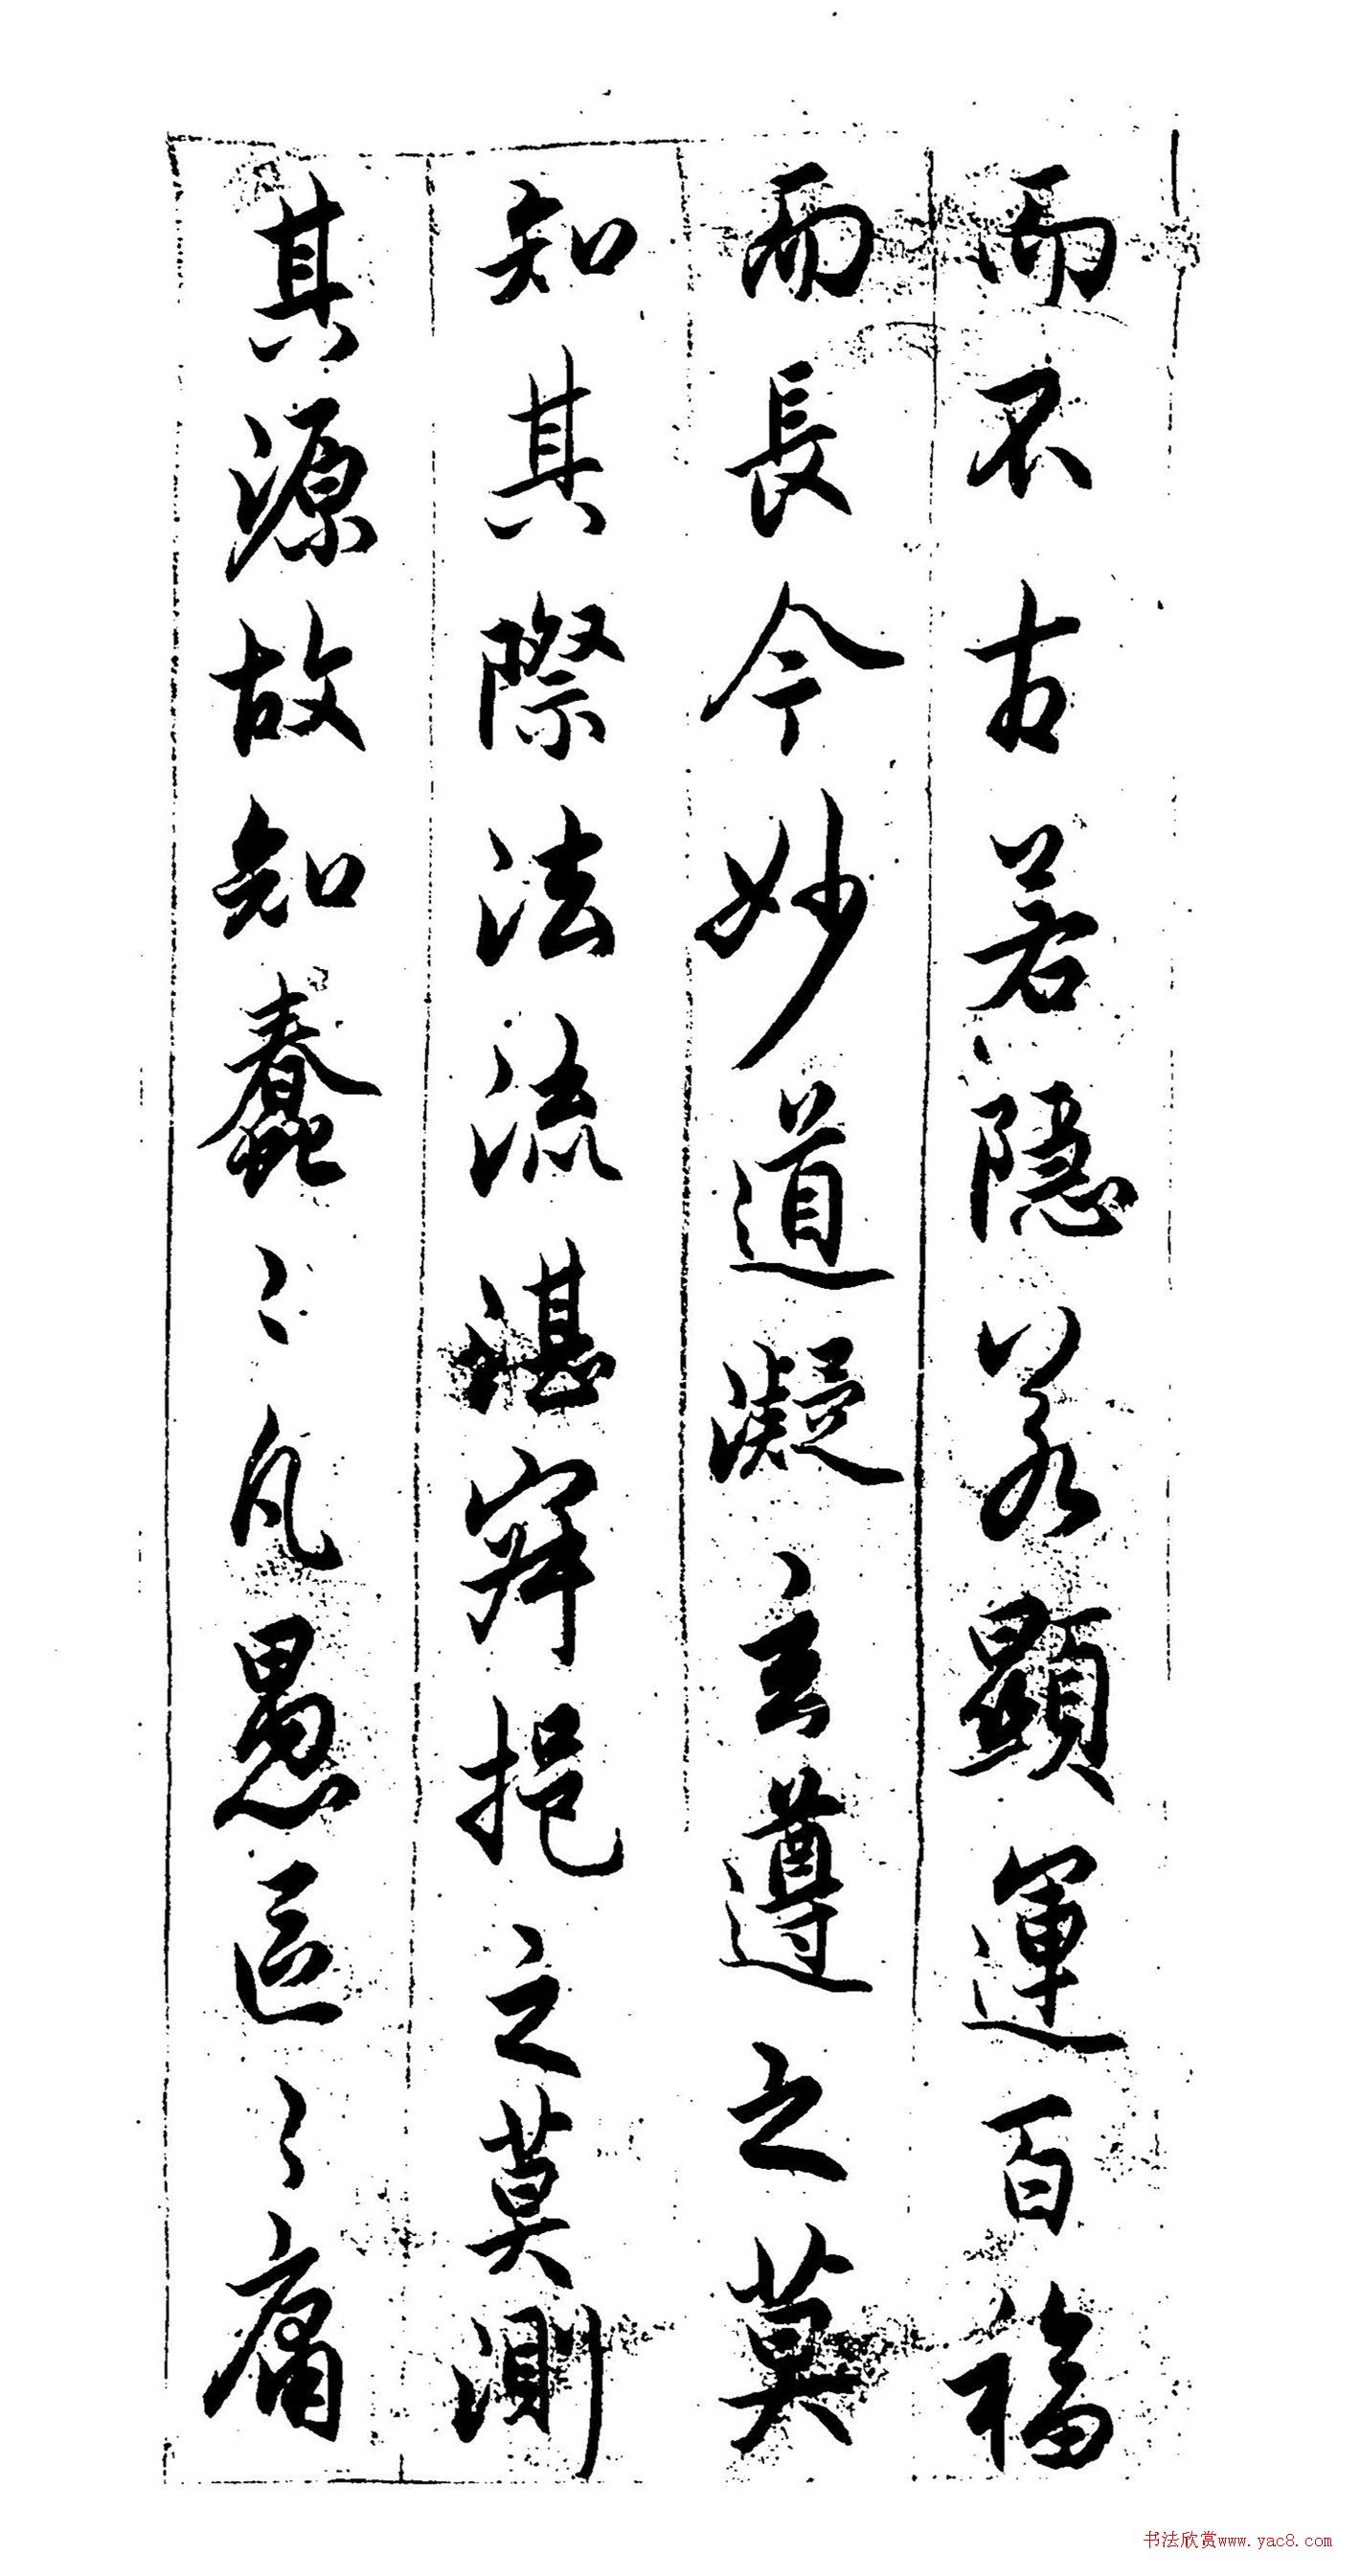 而不古若隱若顯運百福
而長今妙道凝玄遵之莫
知其際法流湛寂挹之莫測
其源故知蠢〻凡愚區〻庸
书法欣赏www.yac8.com